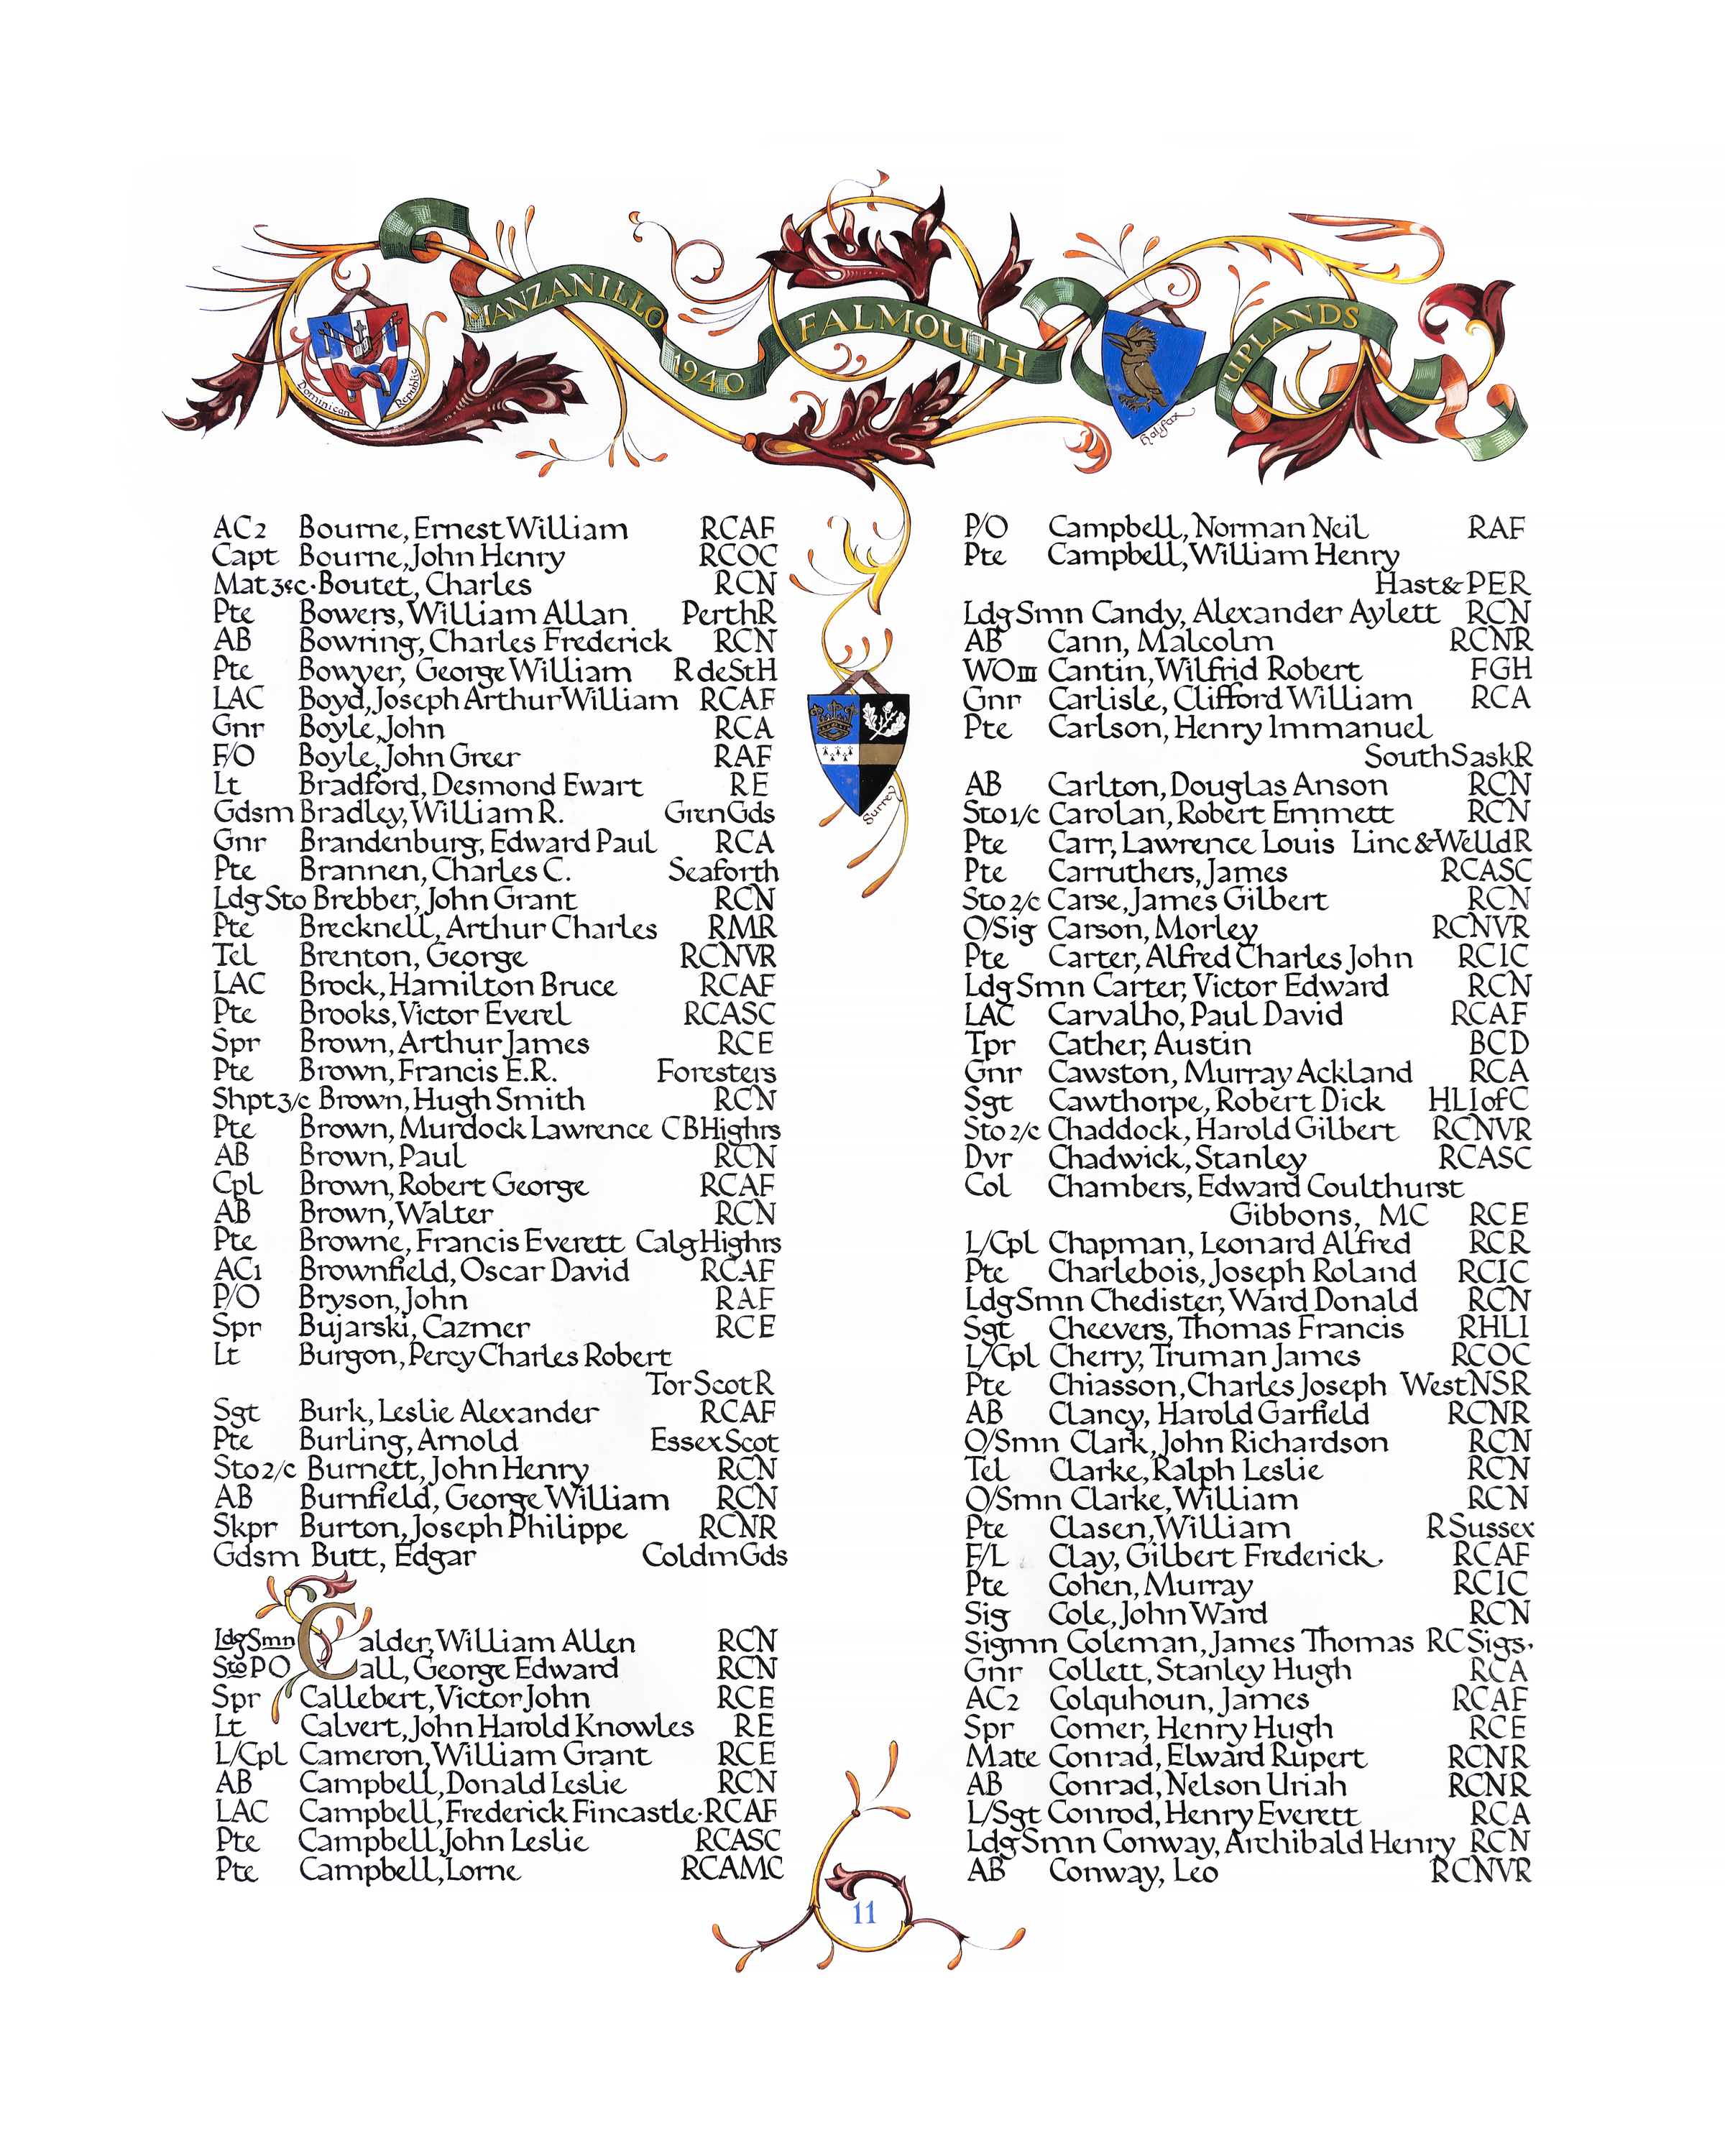 MANZANILLO
1940
FALMOUTH
UPLANDS
Dominican Republic
Halifax
Surrey
AC2 Bourne, Ernest William RCAF
Capt Bourne, John Henry RCOC
Mat 3rc. Boutet, Charles RCN
Pte Bowers, William Allan. PerthR
AB Bowring, Charles Frederick RCN
Pte Bowyer, George William R de St H
LAC Boyd, Joseph Arthur William RCAF
Gnr Boyle, John RCA
F/O Boyle, John Greer RAF
Lt Bradford, Desmond Ewart RE
Gdsm Bradley, William R. GrenGds
Gnr Brandenburg, Edward Paul RCA
Pte Brannen, Charles C. Seaforth
LdgSto Brebber, John Grant RCN
Pte Brecknell, Arthur Charles RMR
Tel Brenton, George RCNVR
LAC Brock, Hamilton Bruce RCAF
Pte Brooks, Victor Everel RCASC
Spr Brown, Arthur James RCE
Pte Brown, Francis E.R. Foresters
Shpt 3/c Brown, Hugh Smith RCN
Pte Brown, Murdock Lawrence CBHighrs
AB Brown, Paul RCN
Cpl Brown, Robert George RCAF
AB Brown, Walter RCN
Pte Browne, Francis Everett CalgHighrs
AC1 Brownfield, Oscar David RCAF
P/O Bryson, John RAF
Spr Bujarski, Cazmer RCE
Lt Burgon, Percy Charles Robert
TorScotR
Sgt Burk, Leslie Alexander RCAF
Pte Burling, Arnold EssexScot
Sto 2/c Burnett, John Henry RCN
AB Burnfield, George William RCN
Skpr Burton, Joseph Philippe RCNR
Gdsm Butt, Edgar ColdmGds
LdgSmn Calder, William Allen RCN
StoPO Call, George Edward RCN
Spr Callebert, Victor John RCE
Lt Calvert, John Harold Knowles RE
L/Cpl Cameron, William Grant RCE
AB Campbell, Donald Leslie RCN
LAC Campbell, Frederick Fincastle. RCAF
Pte Campbell, John Leslie RCASC
Pte Campbell, Lorne RCAMC
P/O Campbell, Norman Neil RAF
Pte Campbell, William Henry
Hast & PER
LdgSmn Candy, Alexander Aylett RCN
AB Cann, Malcolm RCNR
WO III Cantin, Wilfrid Robert FGH
Gnr Carlisle, Clifford William RCA
Pte Carlson, Henry Immanuel
SouthSaskR
AB Carlton, Douglas Anson RCN
Sto 1/c Carolan, Robert Emmett RCN
Pte Carr, Lawrence Louis Linc & WelldR
Pte Carruthers, James RCASC
Sto 2/c Carse, James Gilbert RCN
O/Sig Carson, Morley RCNVR
Pte Carter, Alfred Charles John RCIC
LdgSmn Carter, Victor Edward RCN
LAC Carvalho, Paul David RCAF
Tpr Cather, Austin BCD
Gnr Cawston, Murray Ackland RCA
Sgt Cawthorpe, Robert Dick HLIofC
Sto 2/c Chaddock, Harold Gilbert RCNVR
Dvr Chadwick, Stanley RCASC
Col Chambers, Edward Coulthurst
Gibbons, MC RCE
L/Cpl Chapman, Leonard Alfred RCR
Pte Charlebois, Joseph Roland RCIC
LdgSmn Chedister, Ward Donald RCN
Sgt Cheevers, Thomas Francis RHLI
L/Cpl Cherry, Truman James RCOC
Pte Chiasson, Charles Joseph WestNSR
AB Clancy, Harold Garfield RCNR
O/Smn Clark, John Richardson RCN
Tel Clarke, Ralph Leslie RCN
O/Smn Clarke, William RCN
Pte Clasen, William RSussex
F/L Clay, Gilbert Frederick. RCAF
Pte Cohen, Murray RCIC
Sig Cole, John Ward RCN
Sigmn Coleman, James Thomas RCSigs.
Gnr Collett, Stanley Hugh RCA
AC2 Colquhoun, James RCAF
Spr Comer, Henry Hugh RCE
Mate Conrad, Elward Rupert RCNR
AB Conrad, Nelson Uriah RCNR
L/Sgt Conrod, Henry Everett RCA
LdgSmn Conway, Archibald Henry RCN
AB Conway, Leo RCNVR
11